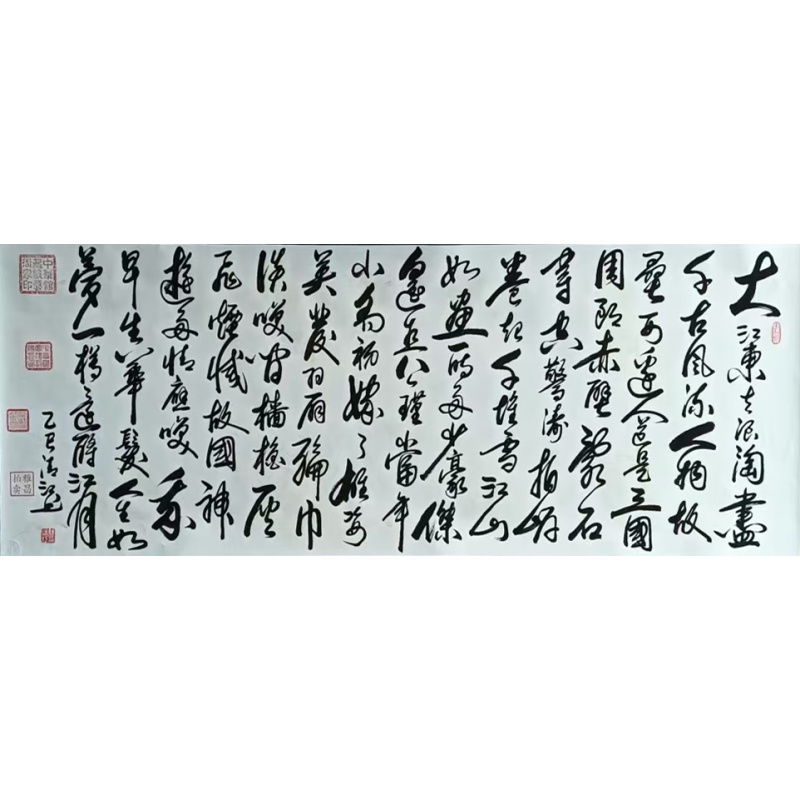 大江東去浪淘盡
千古風流人物故
壘西邊人道是三國
周郎赤壁亂石
穿空驚濤拍岸
卷起千堆雪江山
如畫一時多少豪傑
遙想公瑾當年
小喬初嫁了雄姿
英發羽扇綸巾
談笑間檣櫓灰
飛煙滅故國神
遊多情應笑我
早生華髮人生如
夢一樽還酹江月
乙巳清